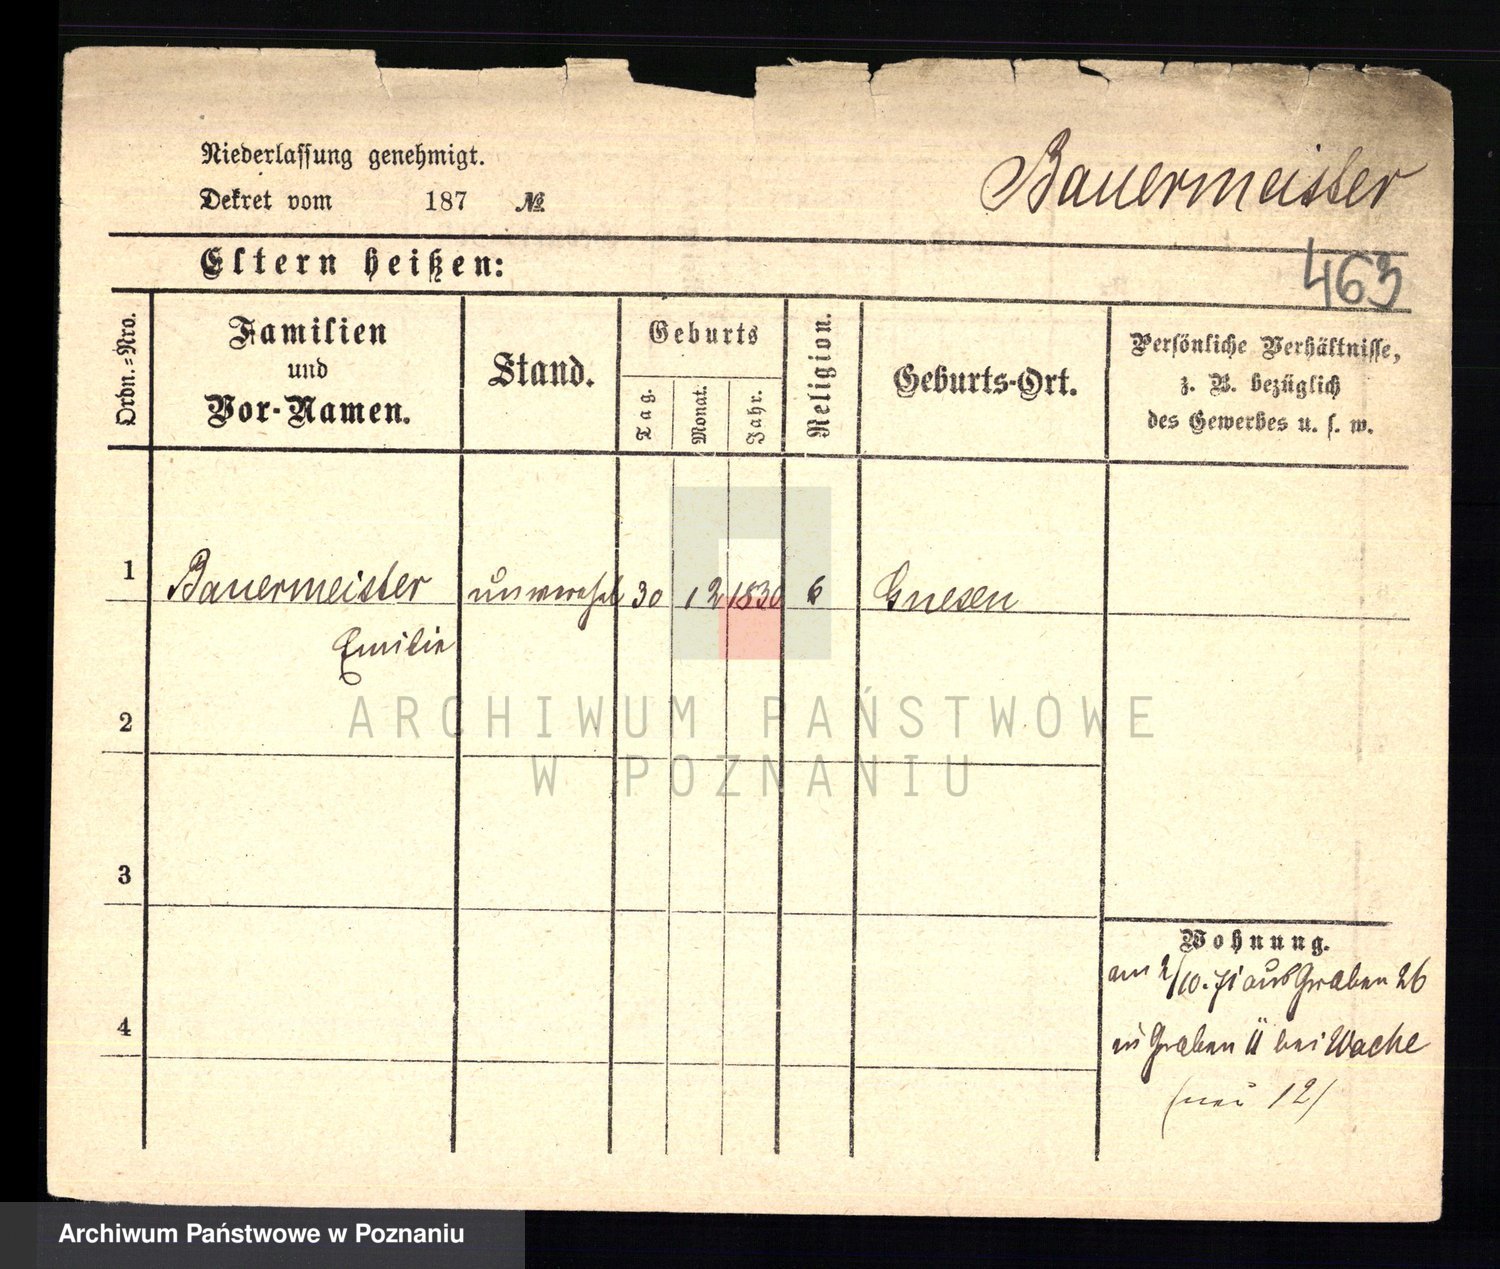 Niederlassung genehmigt.
Bauermeister
Dekret vom 187 №
Eltern heißen:
463
Ordn.-Nro.
Familien
und
Vor-Namen.
Stand.
Geburts
Tag.
Monat.
Jahr.
Religion.
Geburts-Ort.
Persönliche Verhältnisse,
z. B. bezüglich
des Gewerbes u. s. w.
1 Bauermeister 30 12 1830 Gnesen
Emilie
2
ARCHIWUM PAŃSTWOWE
W POZNANIU
3
4
Wohnung.
am 2/10.71 aus Graben 26
Graben 11 bei Wache
(neu 12)
Archiwum Państwowe w Poznaniu